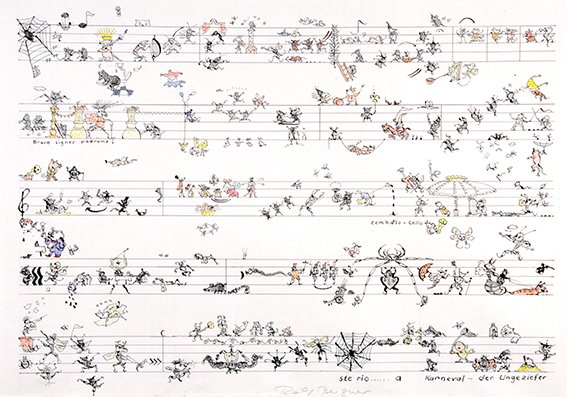 Bravo signor padrone!
Cembalo-Cello
ste rio...... a Karneval - der Ungeziefer